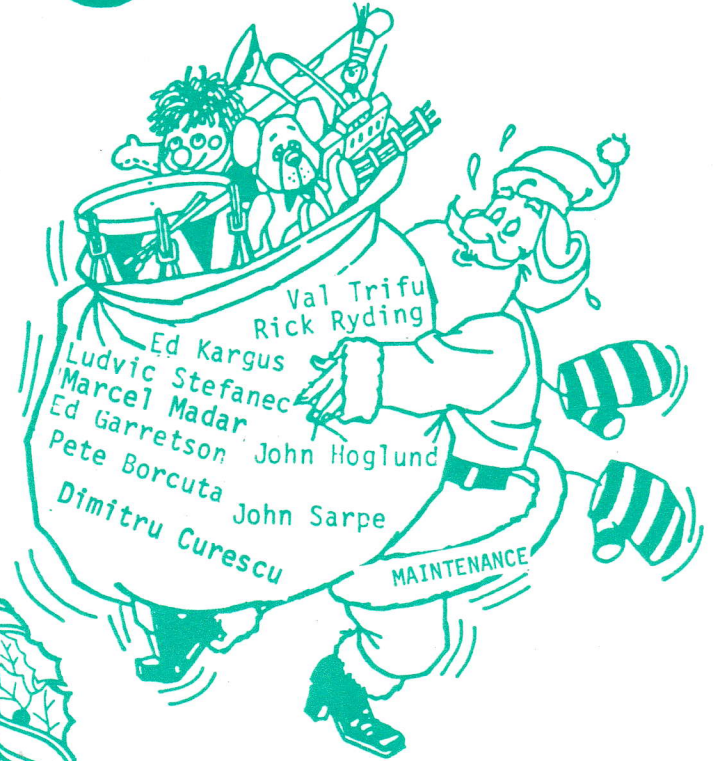 Val Trifu
Rick Ryding
Ed Kargus
Ludvic Stefanec
Marcel Madar
Ed Garretson
John Hoglund
Pete Borcuta
John Sarpe
Dimitru Curescu
MAINTENANCE